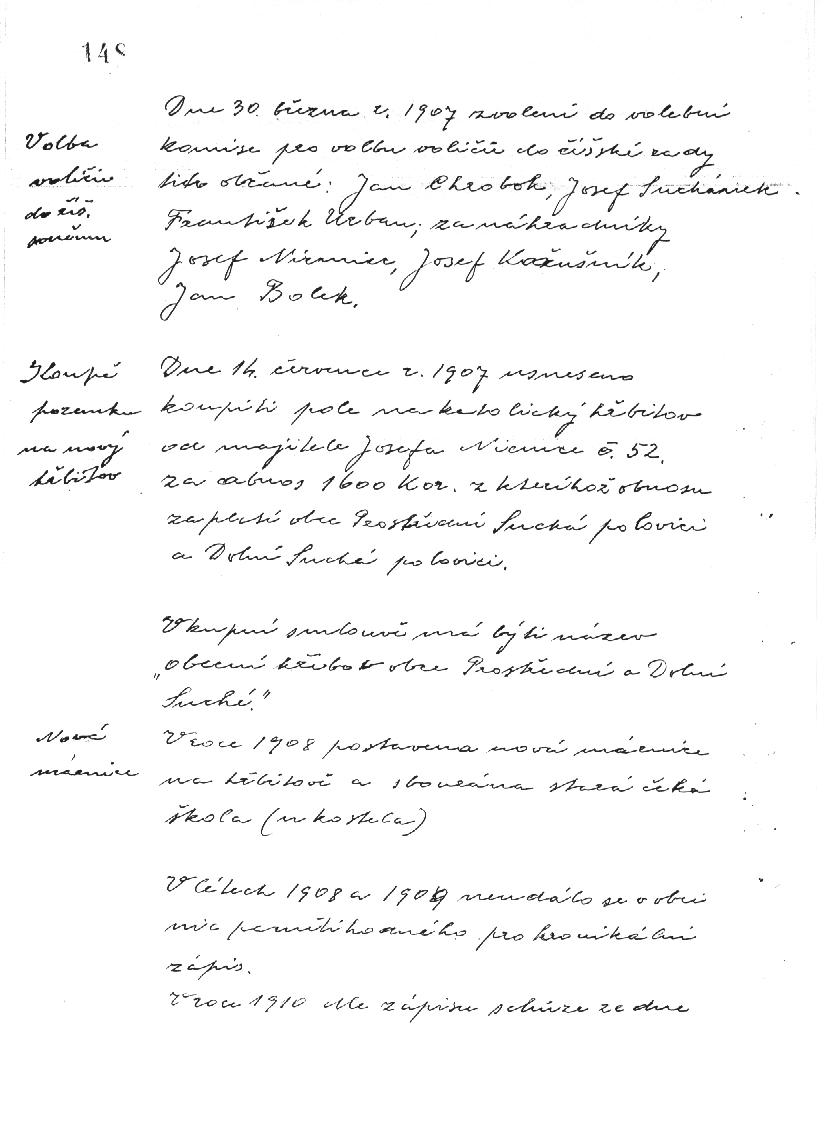 148
Volba
voličů
do říš.
sněmu
Dne 30. března r. 1907 zvoleni do volební
komise pro volbu voličů do říšské rady
tito občané: Jan Chrobok, Josef Suchánek.
František Urban; za náhradníky
Josef Niemiec, Josef Kožušník,
Jan Bolek.
Koupě
pozemku
na nový
hřbitov
Dne 14. července r. 1907 usneseno
koupiti pole na katolický hřbitov
od majitele Josefa Niemce č. 52.
za obnos 1600 Kor. z kteréhož obnosu
zaplatí obec Prostřední Suchá polovici
a Dolní Suchá polovici.
V kupní smlouvě má býti název
„obecní hřbitov obce Prostřední a Dolní
Suché."
Nová
márnice
V roce 1908 postavena nová márnice
na hřbitově a sbourána stará čeká
škola (u kostela)
V létech 1908 a 1909 neudálo se v obci
nic pamětihodného pro kronikální
zápis.
V roce 1910 dle zápisu schůze ze dne